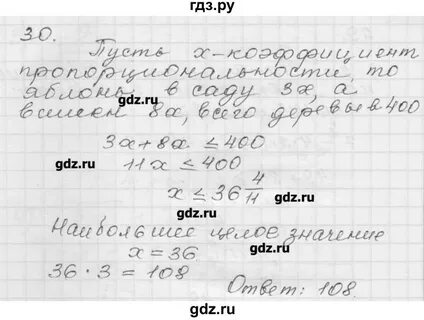 гдз.ру
30.
Пусть х-коэффициент
пропорциональности, то
яблонь в саду 3х, а
вишен 8х, всего деревьев 400
3х+8х ≤ 400
11х ≤ 400
х ≤ 36 4/11
Наибольшее целое значение
х = 36.
36 · 3 = 108
Ответ: 108.
gdz.ru
gdz.ru
gdz.ru
gdz.ru
gdz.ru
gdz.ru
gdz.ru
gdz.ru
gdz.ru
gdz.ru